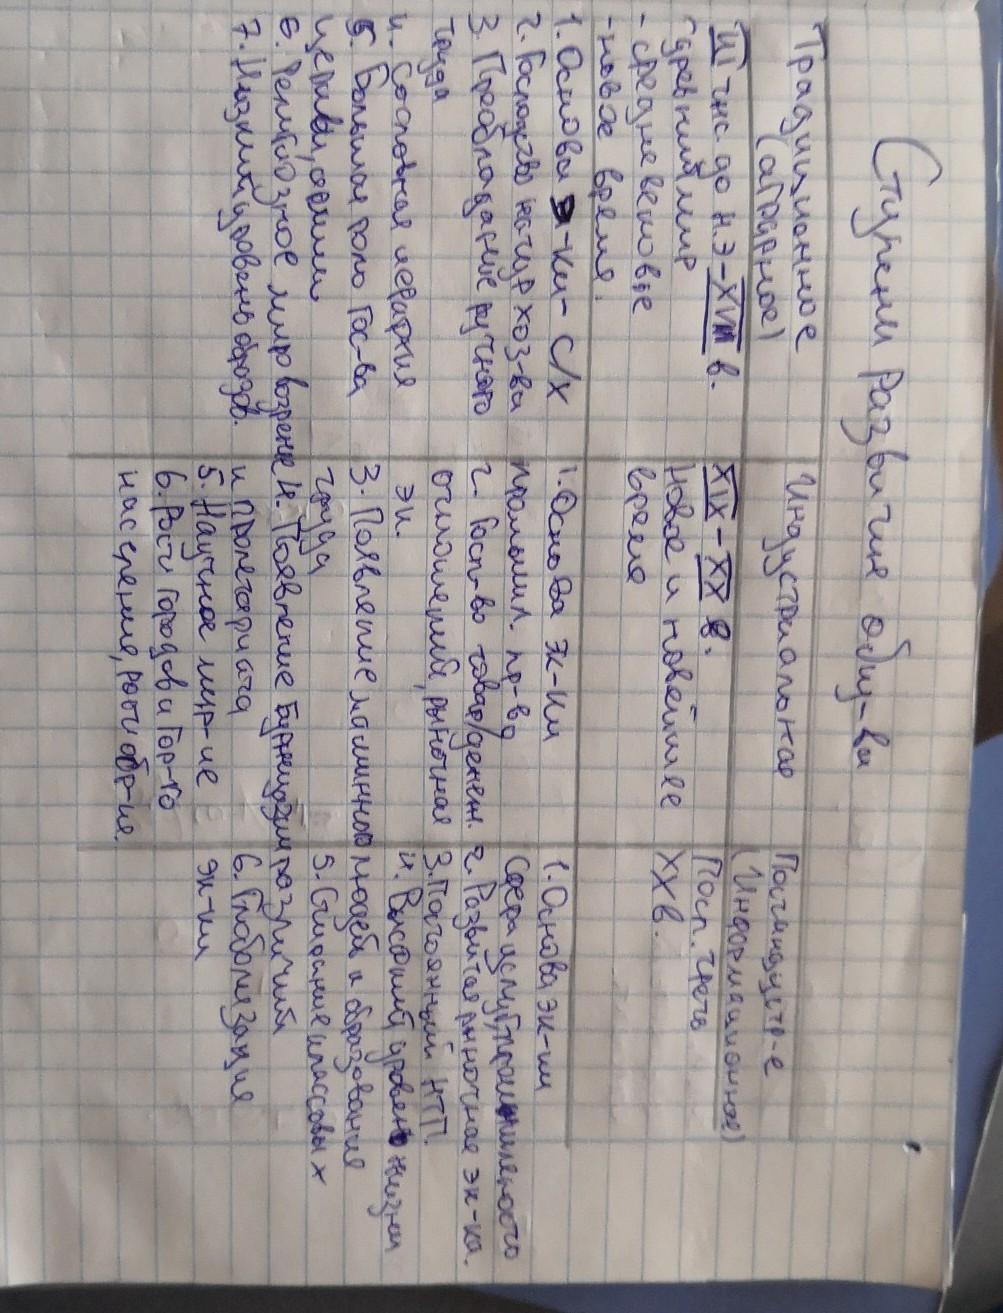 Ступени развитие общ-ва
Традиционное
(аграрное)
III тыс до н.э - XVIII в.
- древний мир
- средневековье
- новое время.
1. Основа эк-ки - с/х
2. Господство натур хоз-ва
3. Преобладание ручного
труда
4. Сословная иерархия
5. Большая роль гос-ва
церкви, армии
6. Религиозное мировозрение
7. Низкий уровень образов.
Индустриальная
XIX - XX в.
новое и новейшее
время
1. Основа эк-ки
промышл. пр-во
2. Госп-во товар/денеж.
отношений, рыночная
эк.
3. Появление машинного
труда
4. Появление буржуазии
и пролетариата
5. Научное мир-ие
6. Рост городов и гор-го
населения, рост обр-ия.
Постиндустр-е
(Информационное)
Посл. треть
XX в.
1. Основа эк-ки
сфера услуг, промышленность
2. Развитая рыночная эк-ка.
3. Постоянный НТП.
4. Высокий уровень жизни
людей и образование
5. Стирание классовых
различий
6. Глобализация
эк-ки